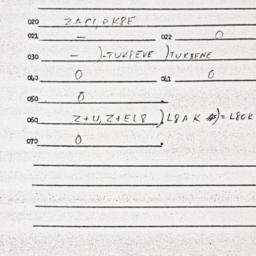 020 ZAMI,DKPE
021 – 022 0
030 – )-TUKBEVE )TUKBENE
040 0 041 0
050 0 .
060 Z+U,Z+EL8 )L8AK )=L80K
070 0 .